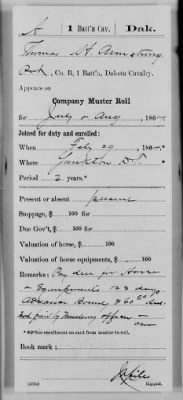 A | 1 Batt'n Cav. | Dak.
Thomas H. Armstrong
Pvt, Co. B, 1 Batt'n, Dakota Cavalry.
Appears on
Company Muster Roll
for July & Aug, 1864.
Joined for duty and enrolled:
When Feby 29, 1864.*
Where Yankton D.T.
Period 3 years.*
Present or absent present
Stoppage, $ 100 for
Due Gov't, $ 100 for
Valuation of horse, $ 100
Valuation of horse equipments, $ 100
Remarks: Pay due for horse
& Equipments 123 days
Advance Bounty $60 due
not paid by Mustering officer
*See enrollment on card from muster-in roll.
Book mark:
(858d)
Copyist.